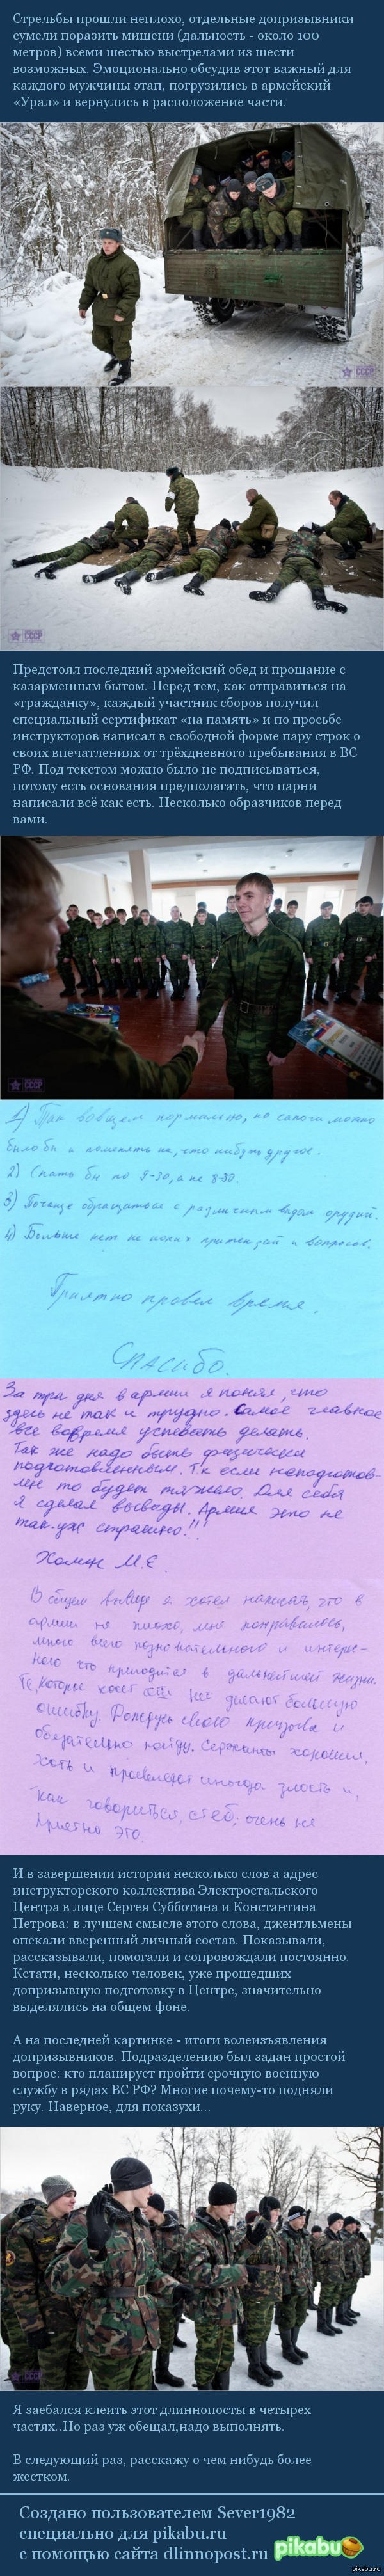 Стрельбы прошли неплохо, отдельные допризывники
сумели поразить мишени (дальность - около 100
метров) всеми шестью выстрелами из шести
возможных. Эмоционально обсудив этот важный для
каждого мужчины этап, погрузились в армейский
«Урал» и вернулись в расположение части.
СССР
СССР
Предстоял последний армейский обед и прощание с
казарменным бытом. Перед тем, как отправиться на
«гражданку», каждый участник сборов получил
специальный сертификат «на память» и по просьбе
инструкторов написал в свободной форме пару строк о
своих впечатлениях от трёхдневного пребывания в ВС
РФ. Под текстом можно было не подписываться,
потому есть основания предполагать, что парни
написали всё как есть. Несколько образчиков перед
вами.
СССР
1) Так вобщем нормально, но сапоги можно
было бы и поменять на, что нибудь другое.
2) Спать бы по 9-30, а не 8-30.
3) Почаще обращаться с различным видом орудий.
4) Больше нет не каких притензий и вопросов.
Приятно провел время.
Спасибо.
За три дня в армии я понял, что
здесь не так и трудно. Самое главное
все вовремя успевать делать.
Так же надо быть физически
подготовленным. Т.к если неподготов-
лен то будет тяжело. Для себя
я сделал выводы. Армия это не
так уж страшно!!!
М.Е.
В общем выводе я хотел написать, что в
армии не плохо, мне понравилось,
много всего познавательного и интерес-
ного что пригодится в дальнейшей жизни.
Те, которые хотят делают большую
ошибку. Дождусь своего призыва и
обязательно пойду. Сержанты хорошие,
хоть и проявляют иногда злость и,
как говориться, стеб, очень не
приятно это.
И в завершении истории несколько слов а адрес
инструкторского коллектива Электростальского
Центра в лице Сергея Субботина и Константина
Петрова: в лучшем смысле этого слова, джентльмены
опекали вверенный личный состав. Показывали,
рассказывали, помогали и сопровождали постоянно.
Кстати, несколько человек, уже прошедших
допризывную подготовку в Центре, значительно
выделялись на общем фоне.
А на последней картинке - итоги волеизъявления
допризывников. Подразделению был задан простой
вопрос: кто планирует пройти срочную военную
службу в рядах ВС РФ? Многие почему-то подняли
руку. Наверное, для показухи...
СССР
Я заебался клеить этот длиннопосты в четырех
частях..Но раз уж обещал,надо выполнять.
В следующий раз, расскажу о чем нибудь более
жестком.
Создано пользователем Sever1982
специально для pikabu.ru
с помощью сайта dlinnopost.ru pikabu
pikabu.ru